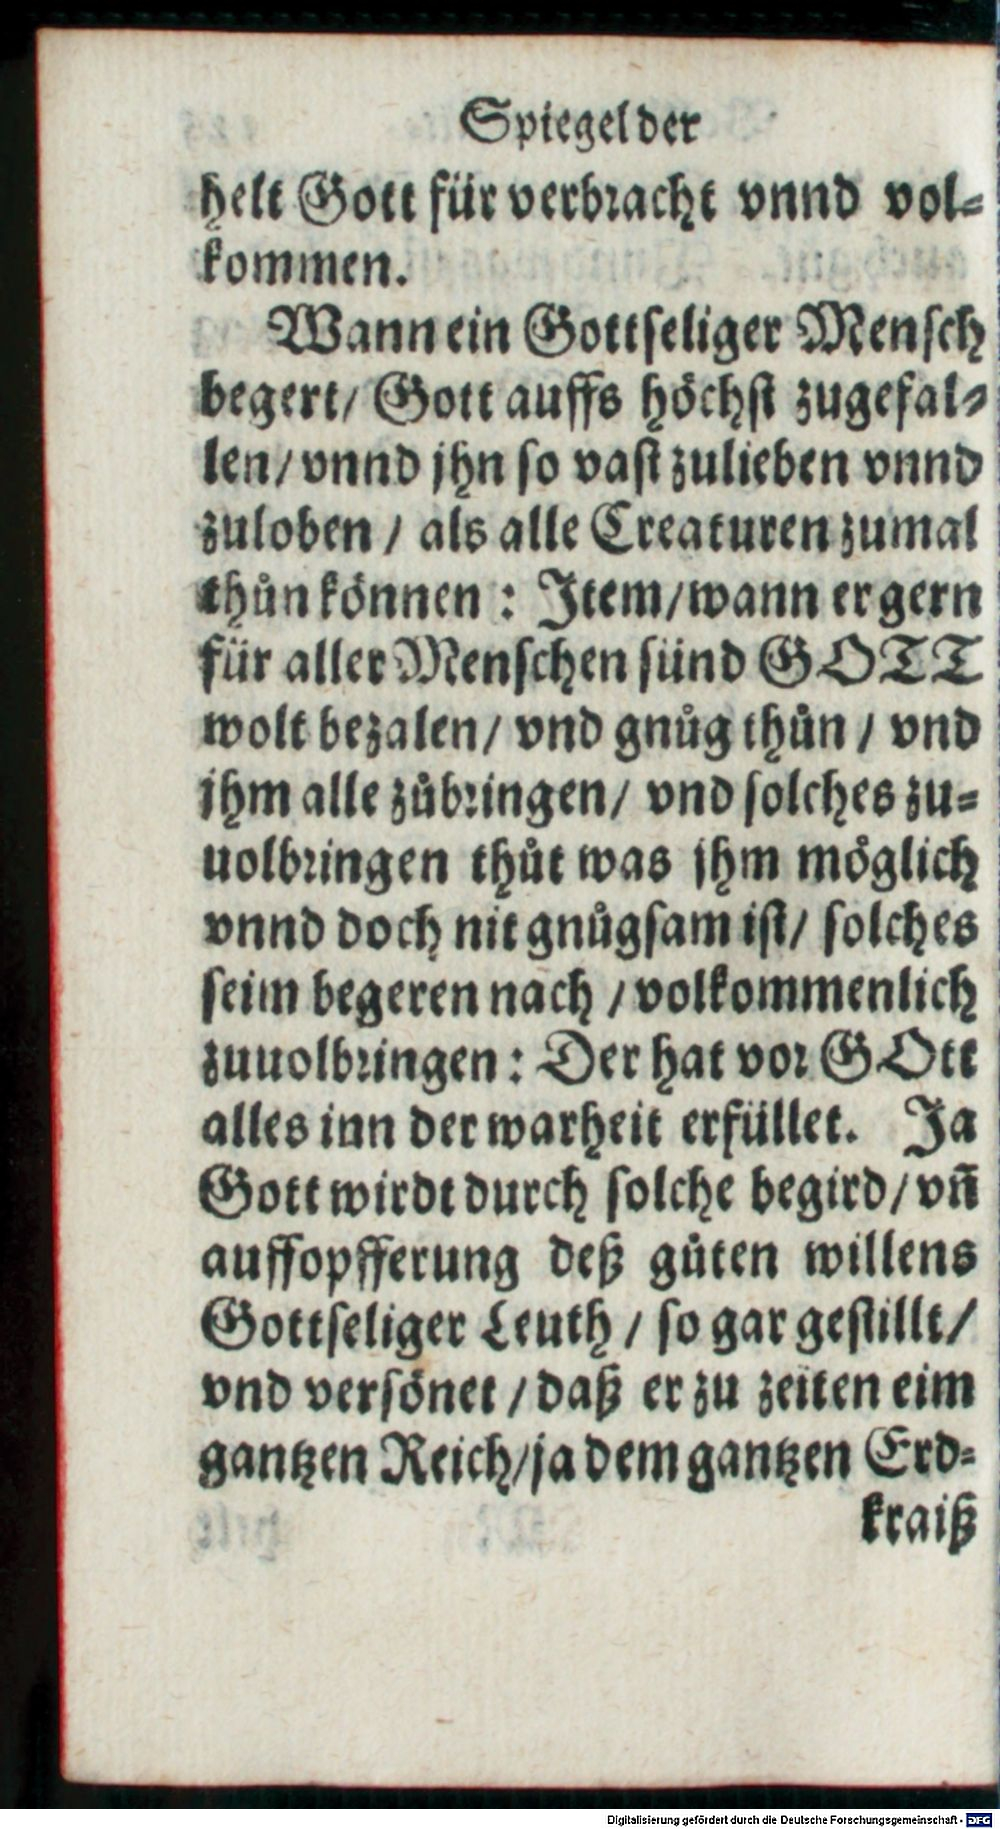 Spiegel der
helt Gott für verbracht vnnd vol-
kommen.
Wann ein Gottseliger Mensch
begert/ Gott auffs höchst zugefal-
len/ vnnd jhn so vast zulieben vnnd
zuloben / als alle Creaturen zumal
thůn können : Item/ wann er gern
für aller Menschen sünd GOTT
wolt bezalen/ vnd gnůg thůn / vnd
jhm alle zůbringen/ vnd solches zu-
uolbringen thůt was jhm möglich
vnnd doch nit gnůgsam ist/ solches
seim begeren nach / volkommenlich
zuuolbringen : Der hat vor GOtt
alles inn der warheit erfüllet. Ja
Gott wirdt durch solche begird/ vñ
auffopfferung deß gůten willens
Gottseliger Leuth / so gar gestillt/
vnd versönet / daß er zu zeiten eim
gantzen Reich/ ja dem gantzen Erd-
kraiß
Digitalisierung gefördert durch die Deutsche Forschungsgemeinschaft - DFG